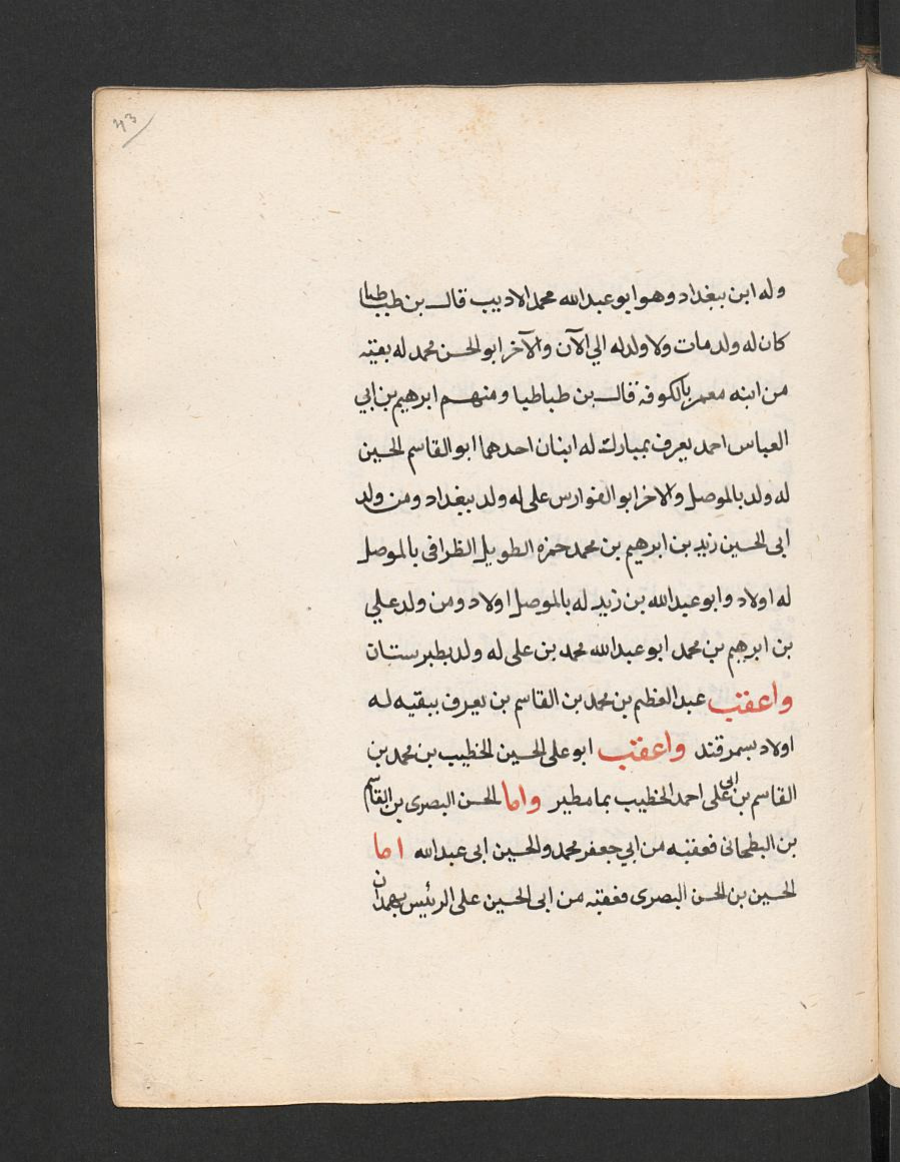 43
وله ابن ببغداد وهو ابو عبدالله محمد الاديب قال بن طباطبا
كان له ولد مات ولا ولد له الي الآن والآخر ابو الحسن محمد له بقيّه
من ابنه معمر بالكوفه قال بن طباطبا ومنهم ابرهيم بن ابي
العباس احمد يعرف بمبارك له ابنان احدهما ابو القاسم الحسين
له ولد بالموصل والاخر ابو الفوارس على له ولد ببغداد ومن ولد
ابى الحسين زيد بن ابرهيم بن محمد حمزه الطويل الظرافى بالموصل
له اولاد وابو عبدالله بن زيد له بالموصل اولاد ومن ولد علي
بن ابرهيم بن محمد ابو عبدالله محمد بن على له ولد بطبرستان
واعقب عبد العظيم بن محمد بن القاسم بن يعرف ببقيه له
اولاد بسمرقند واعقب ابو على الحسين الخطيب بن محمد بن
القاسم بن ابى على احمد الخطيب بمامطير واما الحسن البصرى بن القاسم
بن البطحانى فعقبه من ابي جعفر محمد والحسين ابى عبدالله اما
الحسين بن الحسن البصرى فعقبه من ابى الحسين على الرئيس بهمدان